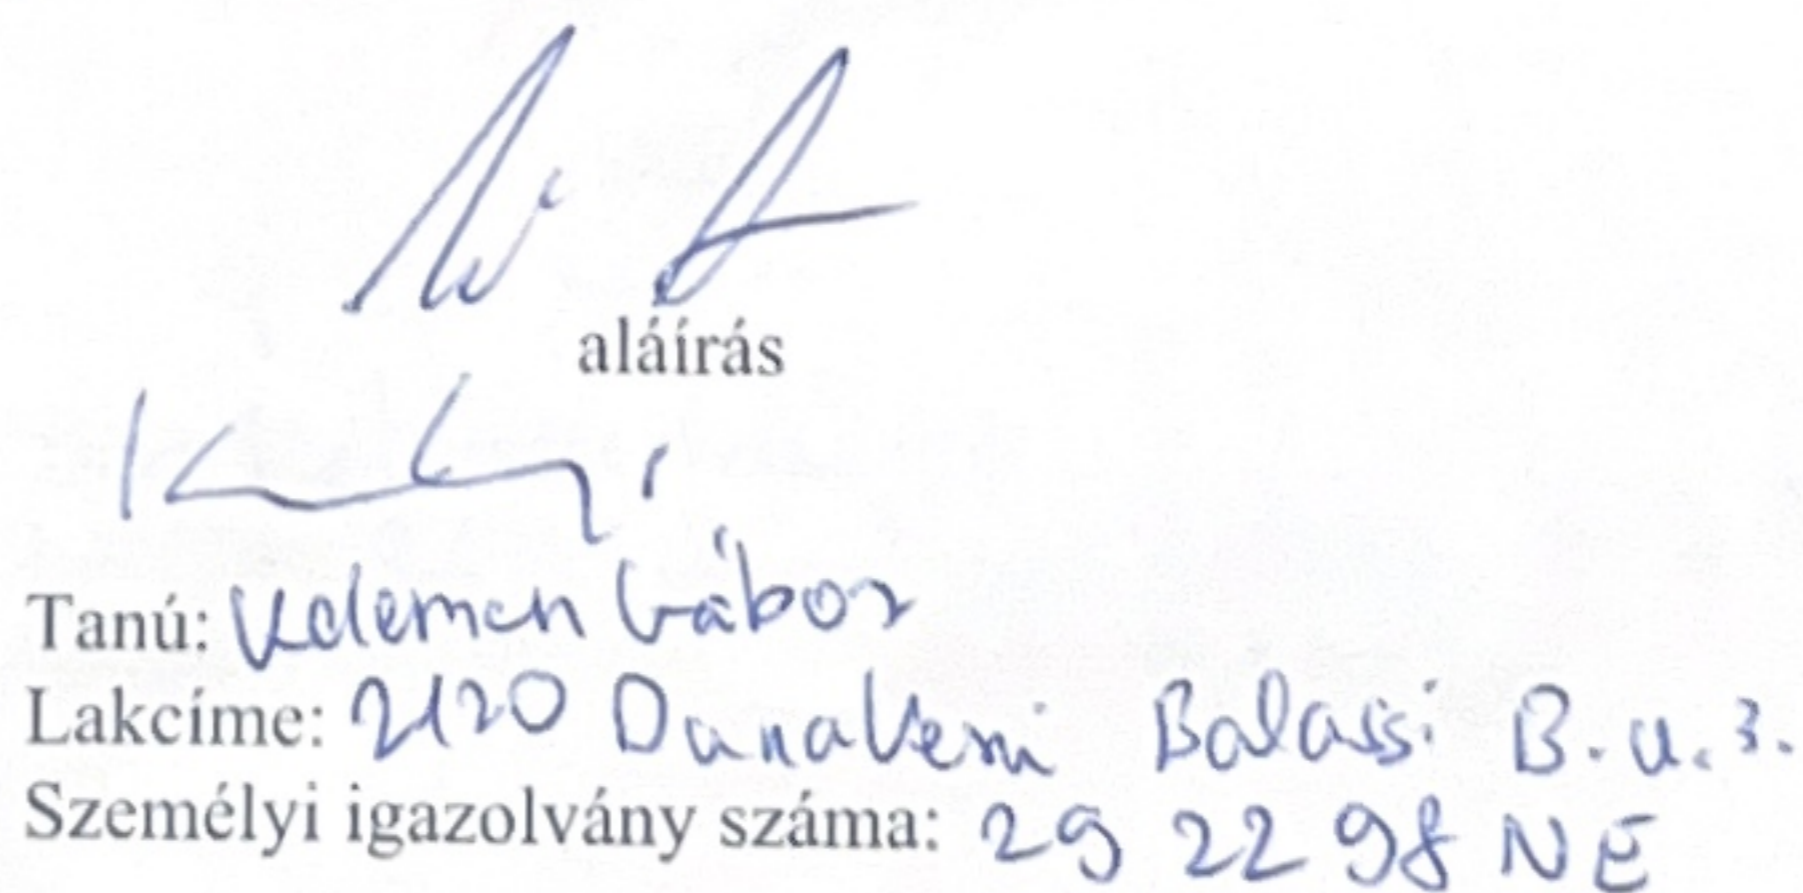 aláírás
Tanú: Kelemen Gábor
Lakcíme: 2120 Dunakeszi Balassi B. u. 3.
Személyi igazolvány száma: 29 22 98 NE